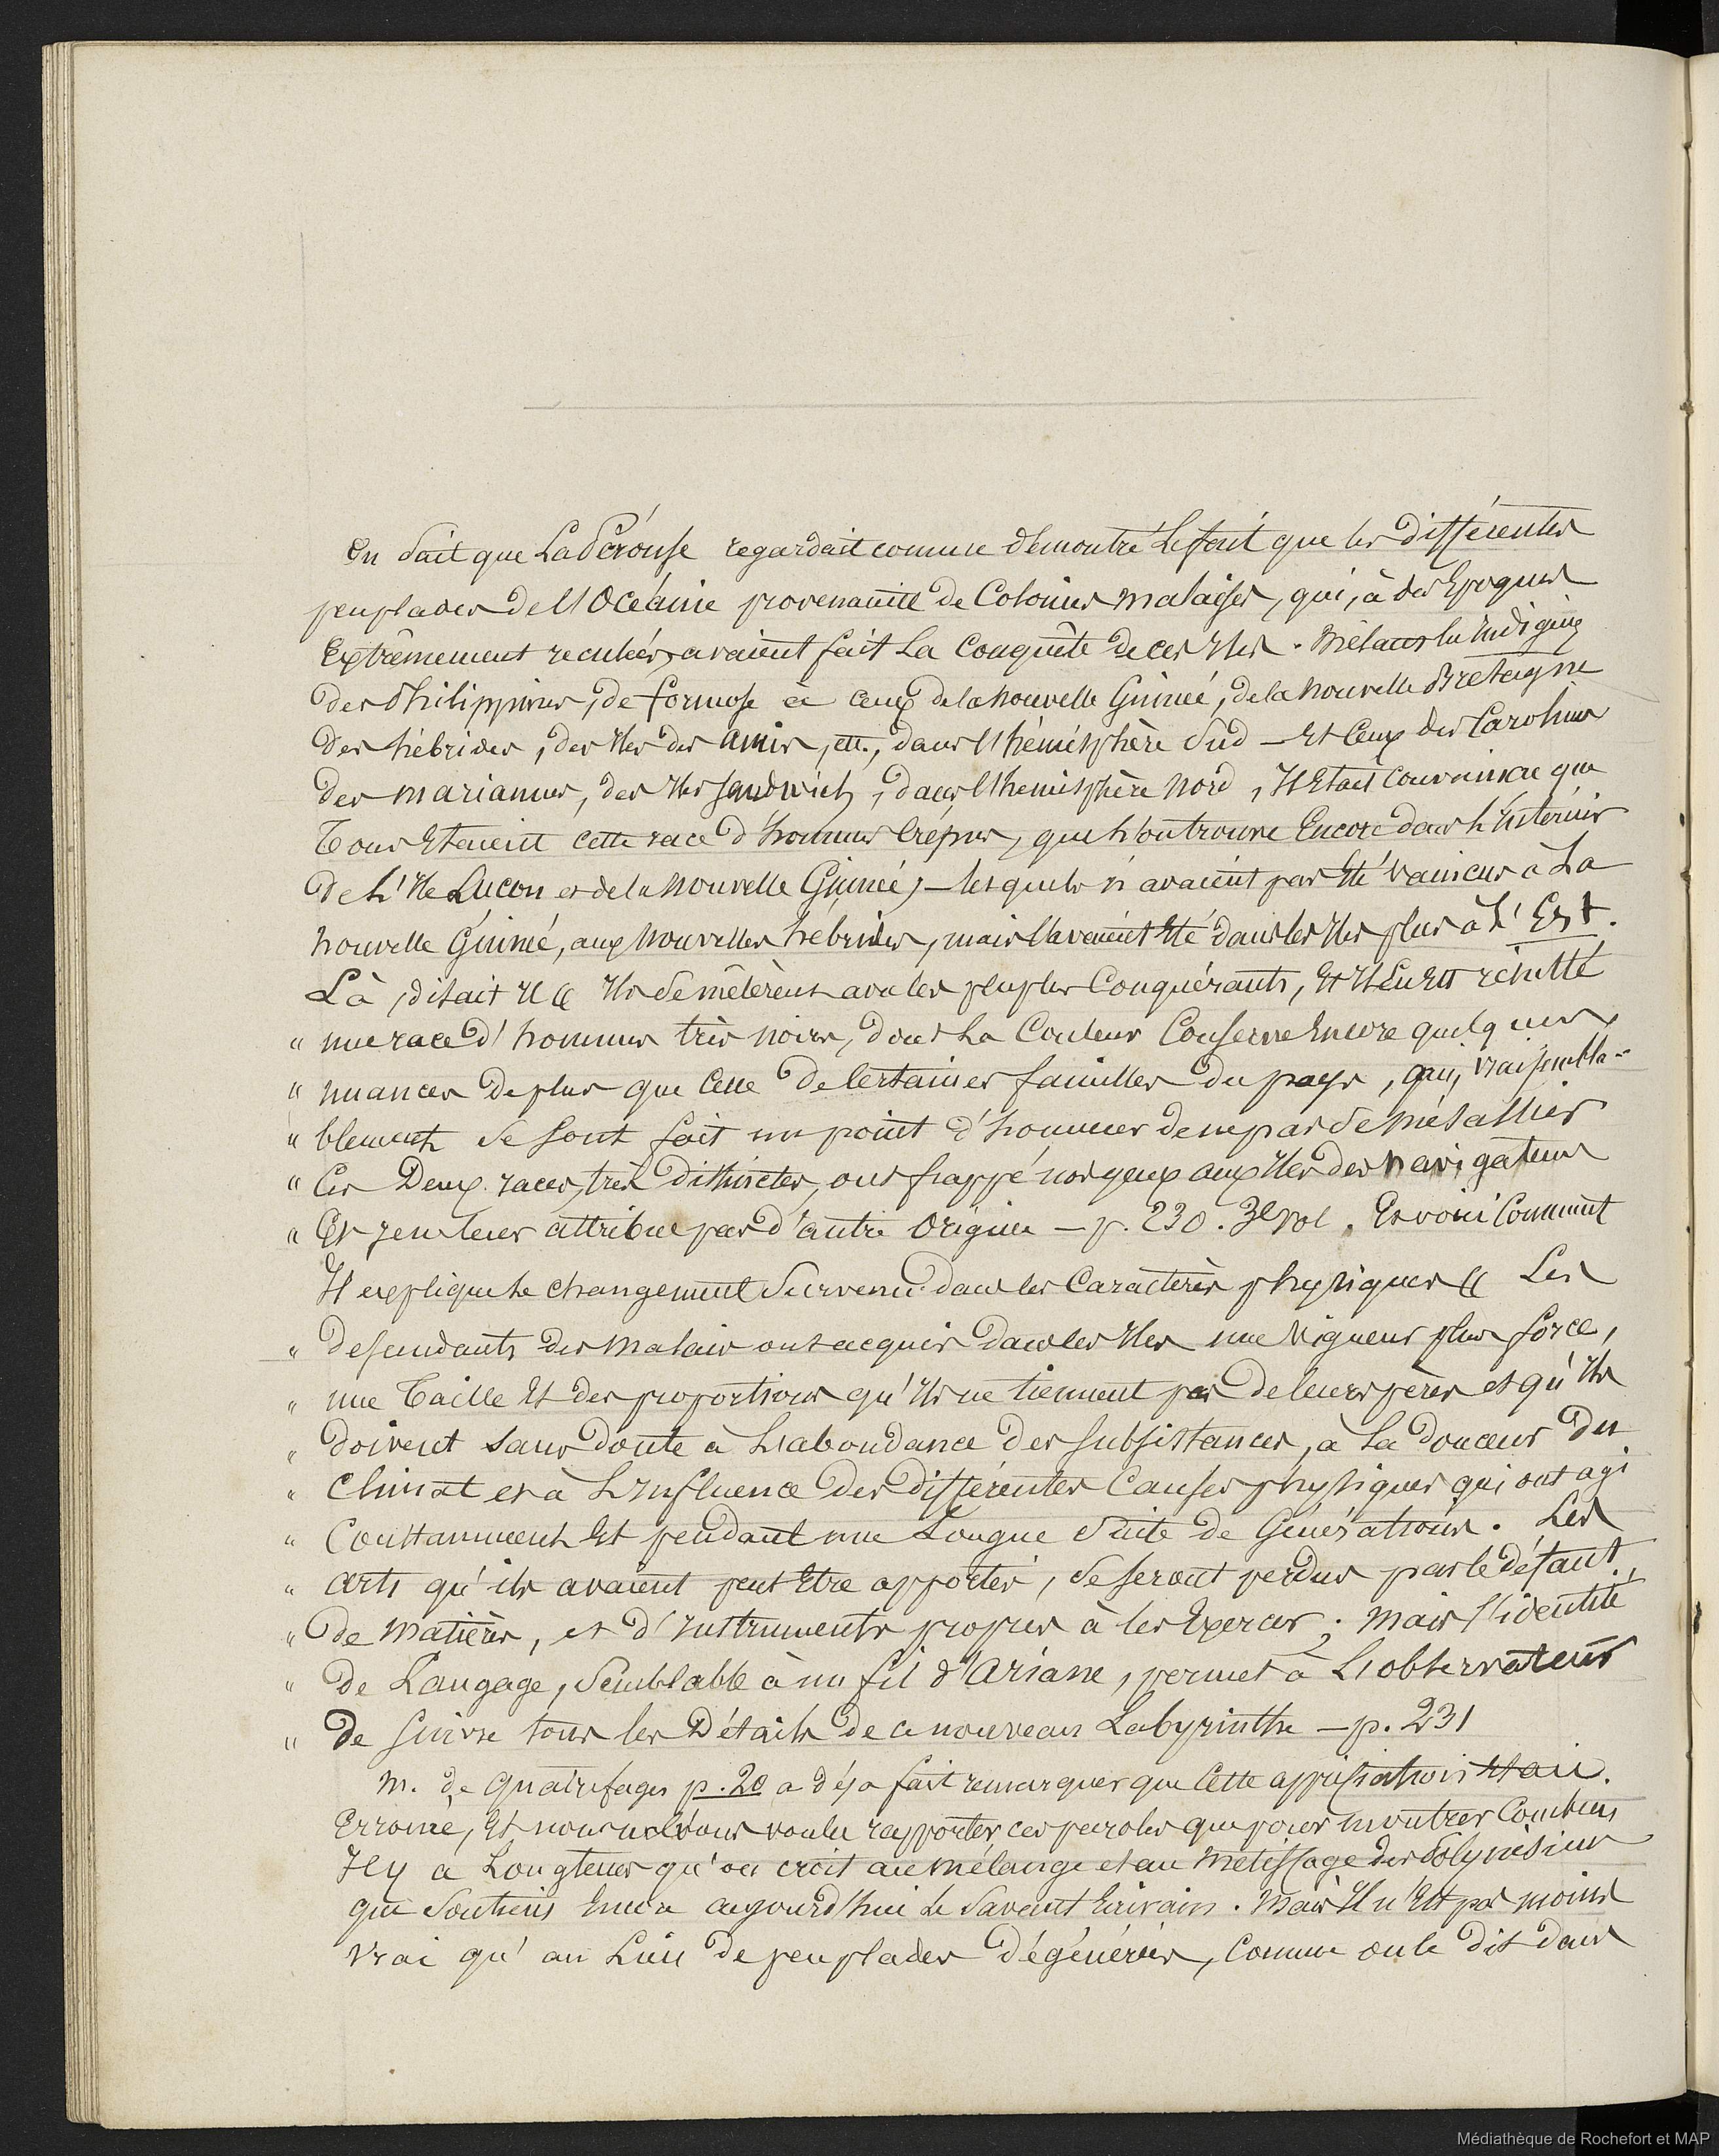 On sait que LaPérouse regardait comme démontré le fait que les différentes
peuplades de l'Océanie provenaient de Colonies malaises, qui, à des Epoques
Extrêmement reculées, avaient fait la Conquête de ces Iles. Mêlant les Indigènes
des Philippines, de formose à ceux de la nouvelle Guinée, de la nouvelle Bretagne
des hébrides, des Iles des Amis, etc., dans l'hémisphère Sud — Et Ceux des Carolines
des mariannes, des Iles Sandwich, dans l'hémisphère nord, Il Etait Convaincu que
Tous Etaient cette race d'hommes Crépus, que l'on trouve Encore dans l'Intérieur
de l'Ile Luçon et de la nouvelle Guinée, — lesquels n'avaient pas Eté vaincus à La
nouvelle Guinée, aux Nouvelles hébrides, mais l'avaient Eté dans les Iles plus à l'Est.
Là, disait Il « Ils se mêlèrent avec les peuples Conquérants, Et Il En Est résulté
" une race d'hommes très noirs, dont La Couleur Conserve Encore quelques
" nuances de plus que Celle de Certaines familles du pays, qui, vraisembla-
" blement se sont fait un point d'honneur de ne pas se mésallier
" Ces Deux races, très distinctes, ont frappé nos yeux aux Iles des navigateurs
" Et je ne leur attribue pas d'autre Origine — p. 230. 3e vol. Et voici Comment
Il explique le changement Survenu dans les Caractères physiques « Les
" descendants des Malais ont acquis dans les Iles une Vigueur plus force,
" une Taille Et des proportions qu'Ils ne tiennent pas de leurs pères et qu'Ils
" doivent sans doute à L'abondance des subsistances, à La douceur du
" Climat et à L'Influence des différentes Causes physiques qui ont agi
" Constamment Et pendant une Longue Suite de Générations. Les
" Arts qu'ils avaient peut Etre apportés, se seront perdus par le défaut
" de Matières, et d'Instruments propres à les Exercer; Mais l'identité
" de Langage, Semblable à un fil d'Ariane, permet à L'observateur
" De suivre tous les Détails de ce nouveau Labyrinthe — p. 231
M. de Quatrefages p. 20 a déjà fait remarquer que Cette appréciation Etait
Erronée, Et nous n'avons voulu rapporter ces paroles que pour montrer Combien
Il y a Longtems qu'on croit au Mélange et au Métissage des Polynésiens
que Soutient Encore aujourd'hui le Savant Ecrivain. Mais Il n'Est pas moins
Vrai qu'au Lieu de peuplades dégénérées, Comme on le dit dans
Médiathèque de Rochefort et MAP